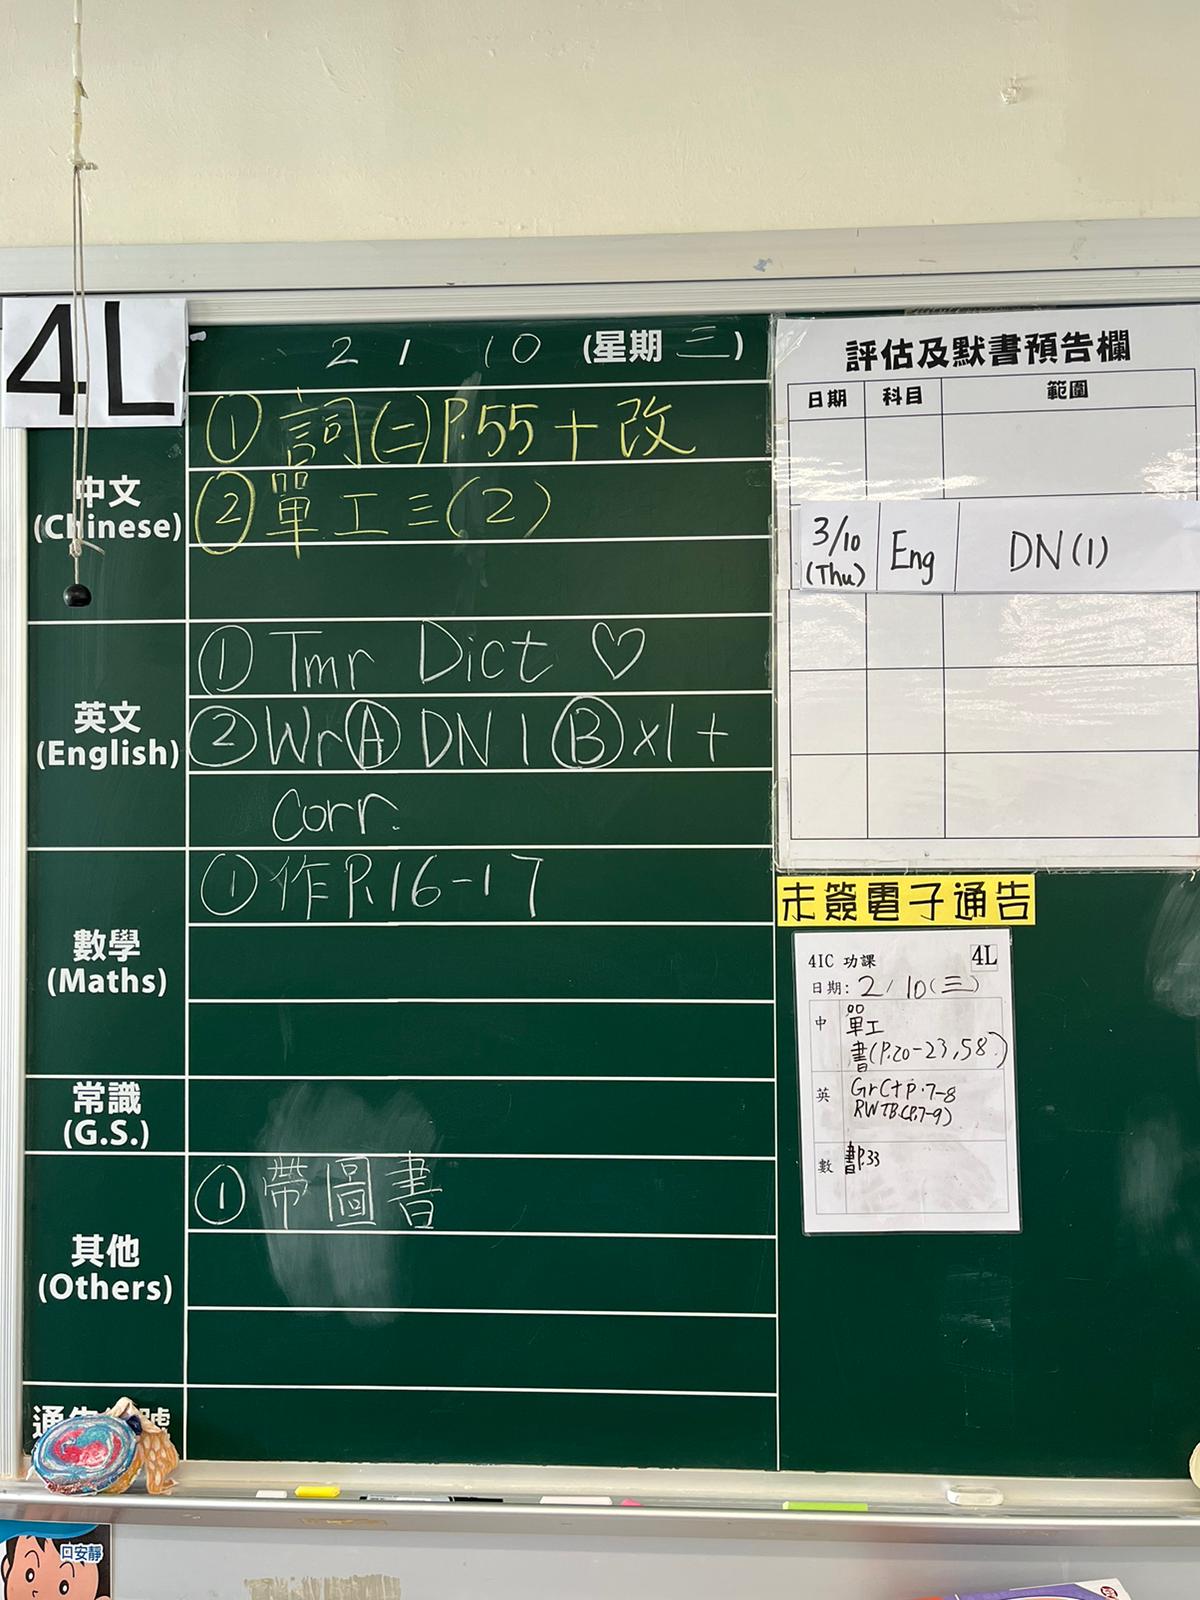 4L
2 / 10 (星期三)
中文
(Chinese)
① 詞(二)P.55+改
② 單工三(2)
英文
(English)
① Tmr Dict ♡
② Wr Ⓐ DN 1 Ⓑ x1 +
Corr.
數學
(Maths)
① 作P.16-17
常識
(G.S.)
其他
(Others)
① 帶圖書
通告 號
評估及默書預告欄
日期 科目 範圍
3/10 Eng DN(1)
(Thu)
未簽電子通告
4IC 功課 4L
日期: 2/10(三)
中 單工
書(P.20-23,58)
英 GrC+P.7-8
RWTB(P.7-9)
數 書P.33
口安靜